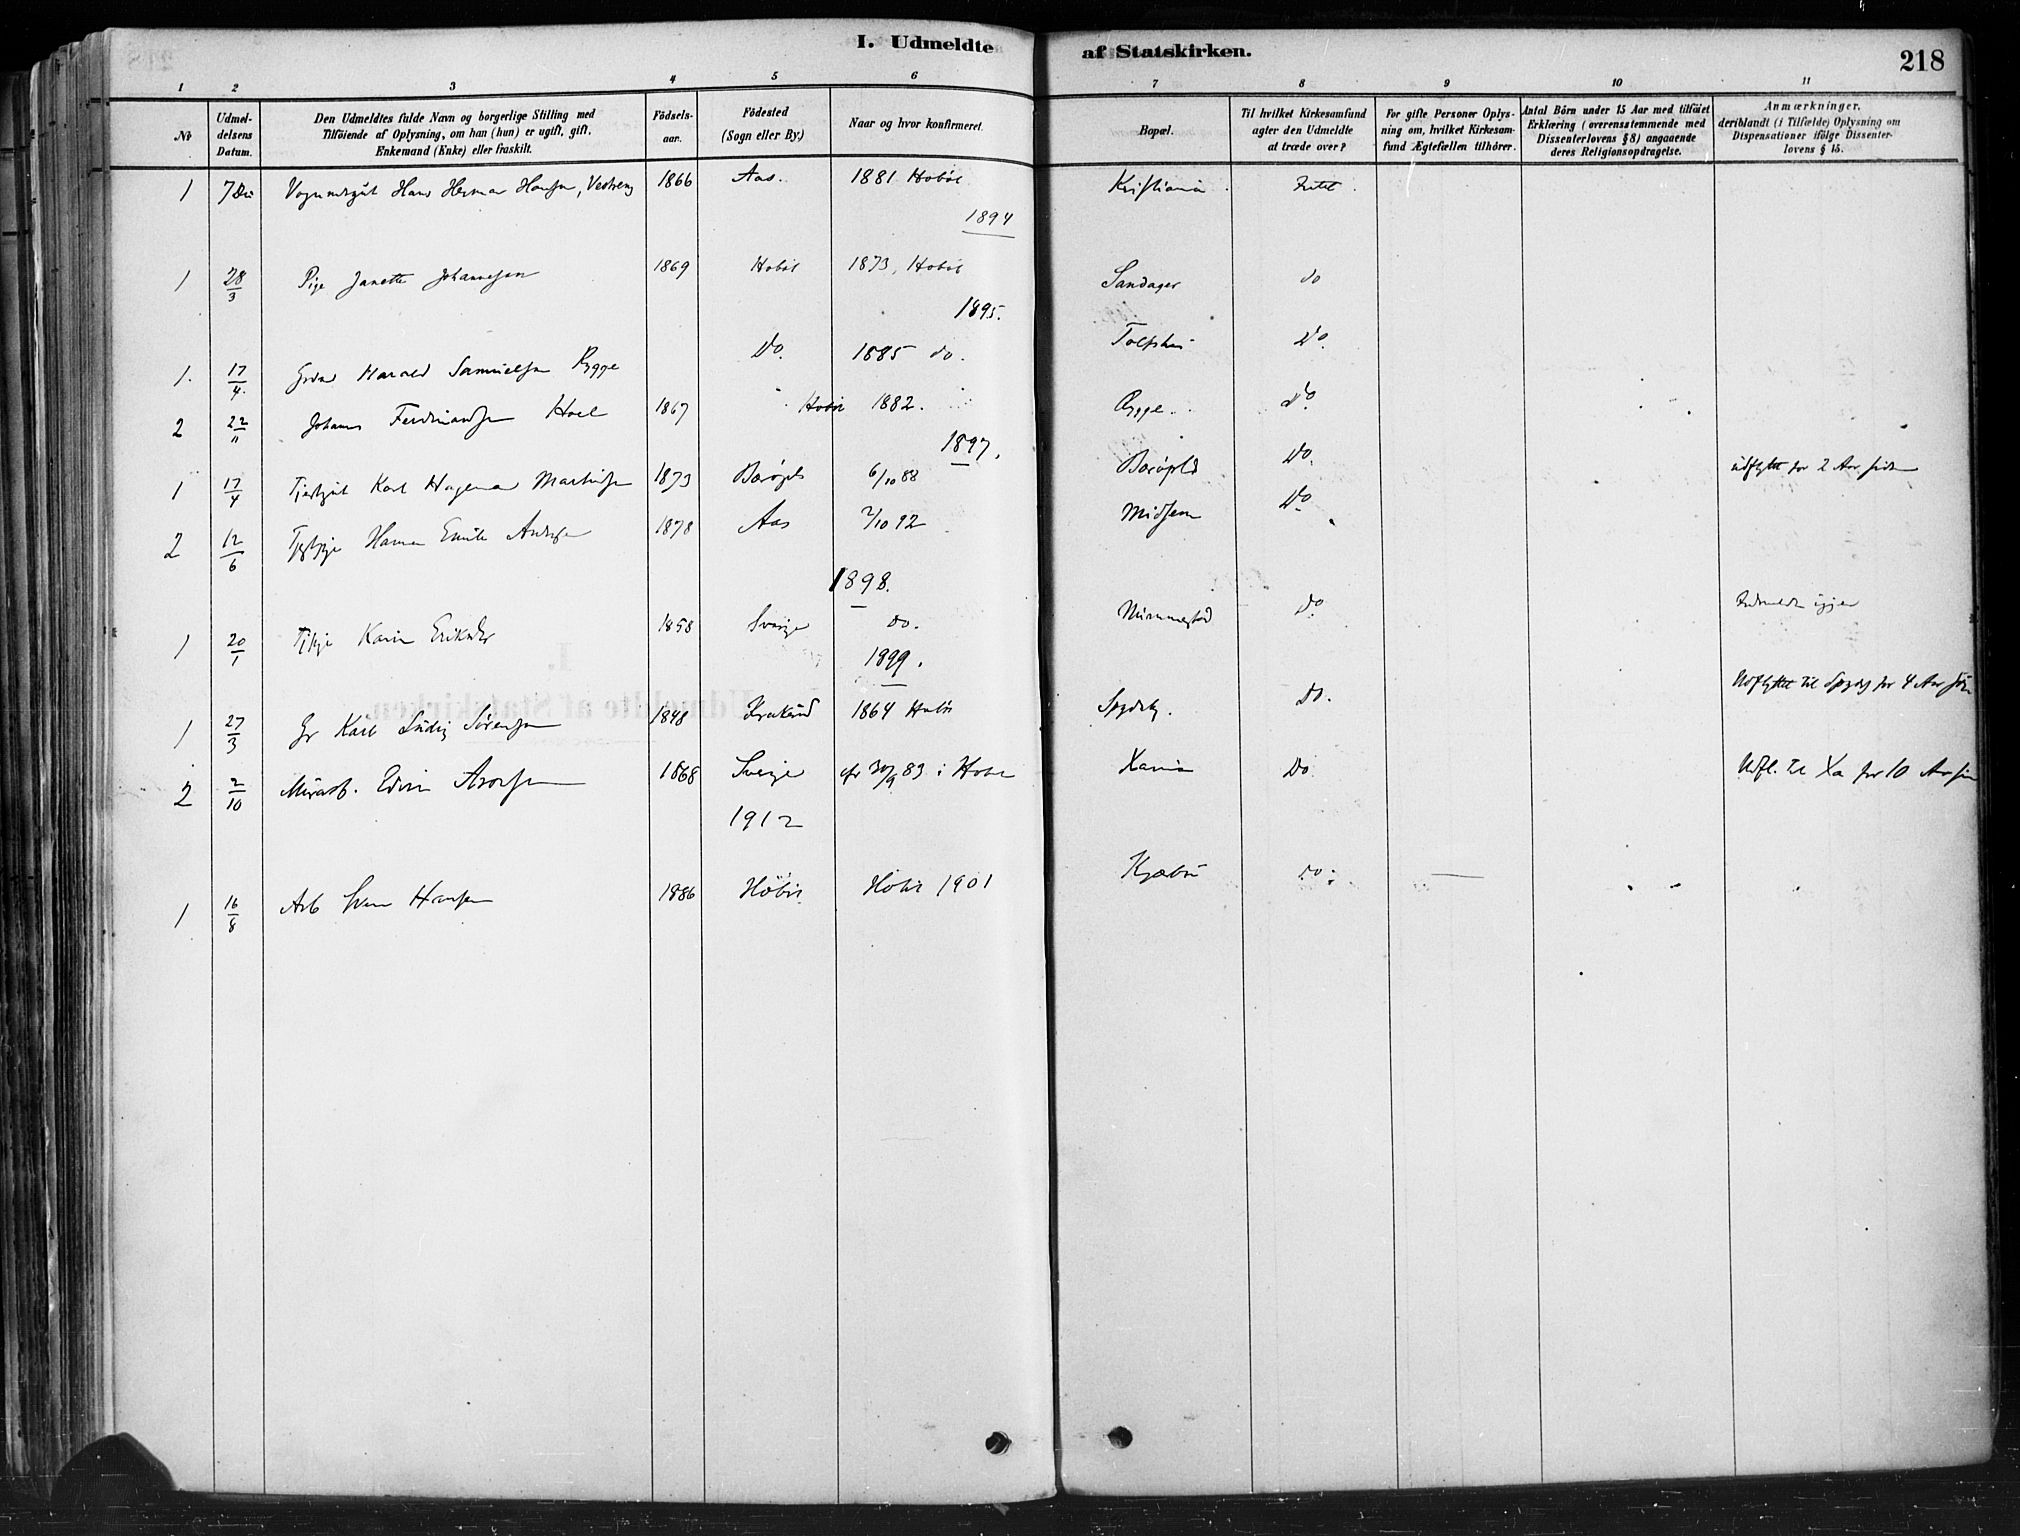 I. Udmeldte af Statskirken.
218
1 2 3 4 5 6 7 8 9 10 11
No
Udmel-
delsens
Datum.
Den Udmeldtes fulde Navn og borgerlige Stilling med
Tilföiende af Oplysning, om han (hun) er ugift, gift,
Enkemand (Enke) eller fraskilt.
Födsels-
aar.
Födested
(Sogn eller By.)
Naar og hvor konfirmeret.
Bopæl.
Til hvilket Kirkesamfund
agter den Udmeldte
at træde over?
For gifte Personer Oplys-
ning om, hvilket Kirkesam-
fund Ægtefællen tilhörer.
Antal Börn under 15 Aar med tilföiet
Erklæring (overensstemmende med
Dissenterlovens § 8) angaaende
deres Religionsopdragelse.
Anmærkninger,
deriblandt (i Tilfælde) Oplysning om
Dispensationer ifölge Dissenter-
lovens § 15.
1 Hans Herman Hansen, Vestreng 1866 Aas. 1881 Hobøl Kristiania Intet
1894
1 28/3 Pige Janette Johannessen 1869 Hobøl 1873, Hobøl Sandager do
1895.
1. 17/4. Harald Samuelsen Rygge Do. 1885 do. Do.
2 22/11 Johannes Ferdinandsen Hoel 1867 Hobøl 1882. Rygge. do.
1897.
1 17/4 Karl Hageman Martinsen 1873 6/10 88 Do. udflyttet for 2 Aar siden
2 12/6 1878 Aas 2/10 92 Midsem Do.
1898.
1 20/1 Karin 1858 Sverige do. Do. igjen
1899.
1 27/3 Karl Ludvig Sørensen 1848 Kraakstad 1864 Hobøl Spydeb. Do. Udflyttet til Spydeb for 4 Aar siden
2 2/10 Edvin Aronsen 1868 Sverige cfr 30/9 83 i Hobøl Xania Do. Udfl. til Xa for 10 Aar siden
1912
1 16/8 Arb Hansen 1886 Hobøl Hobøl 1901 do.